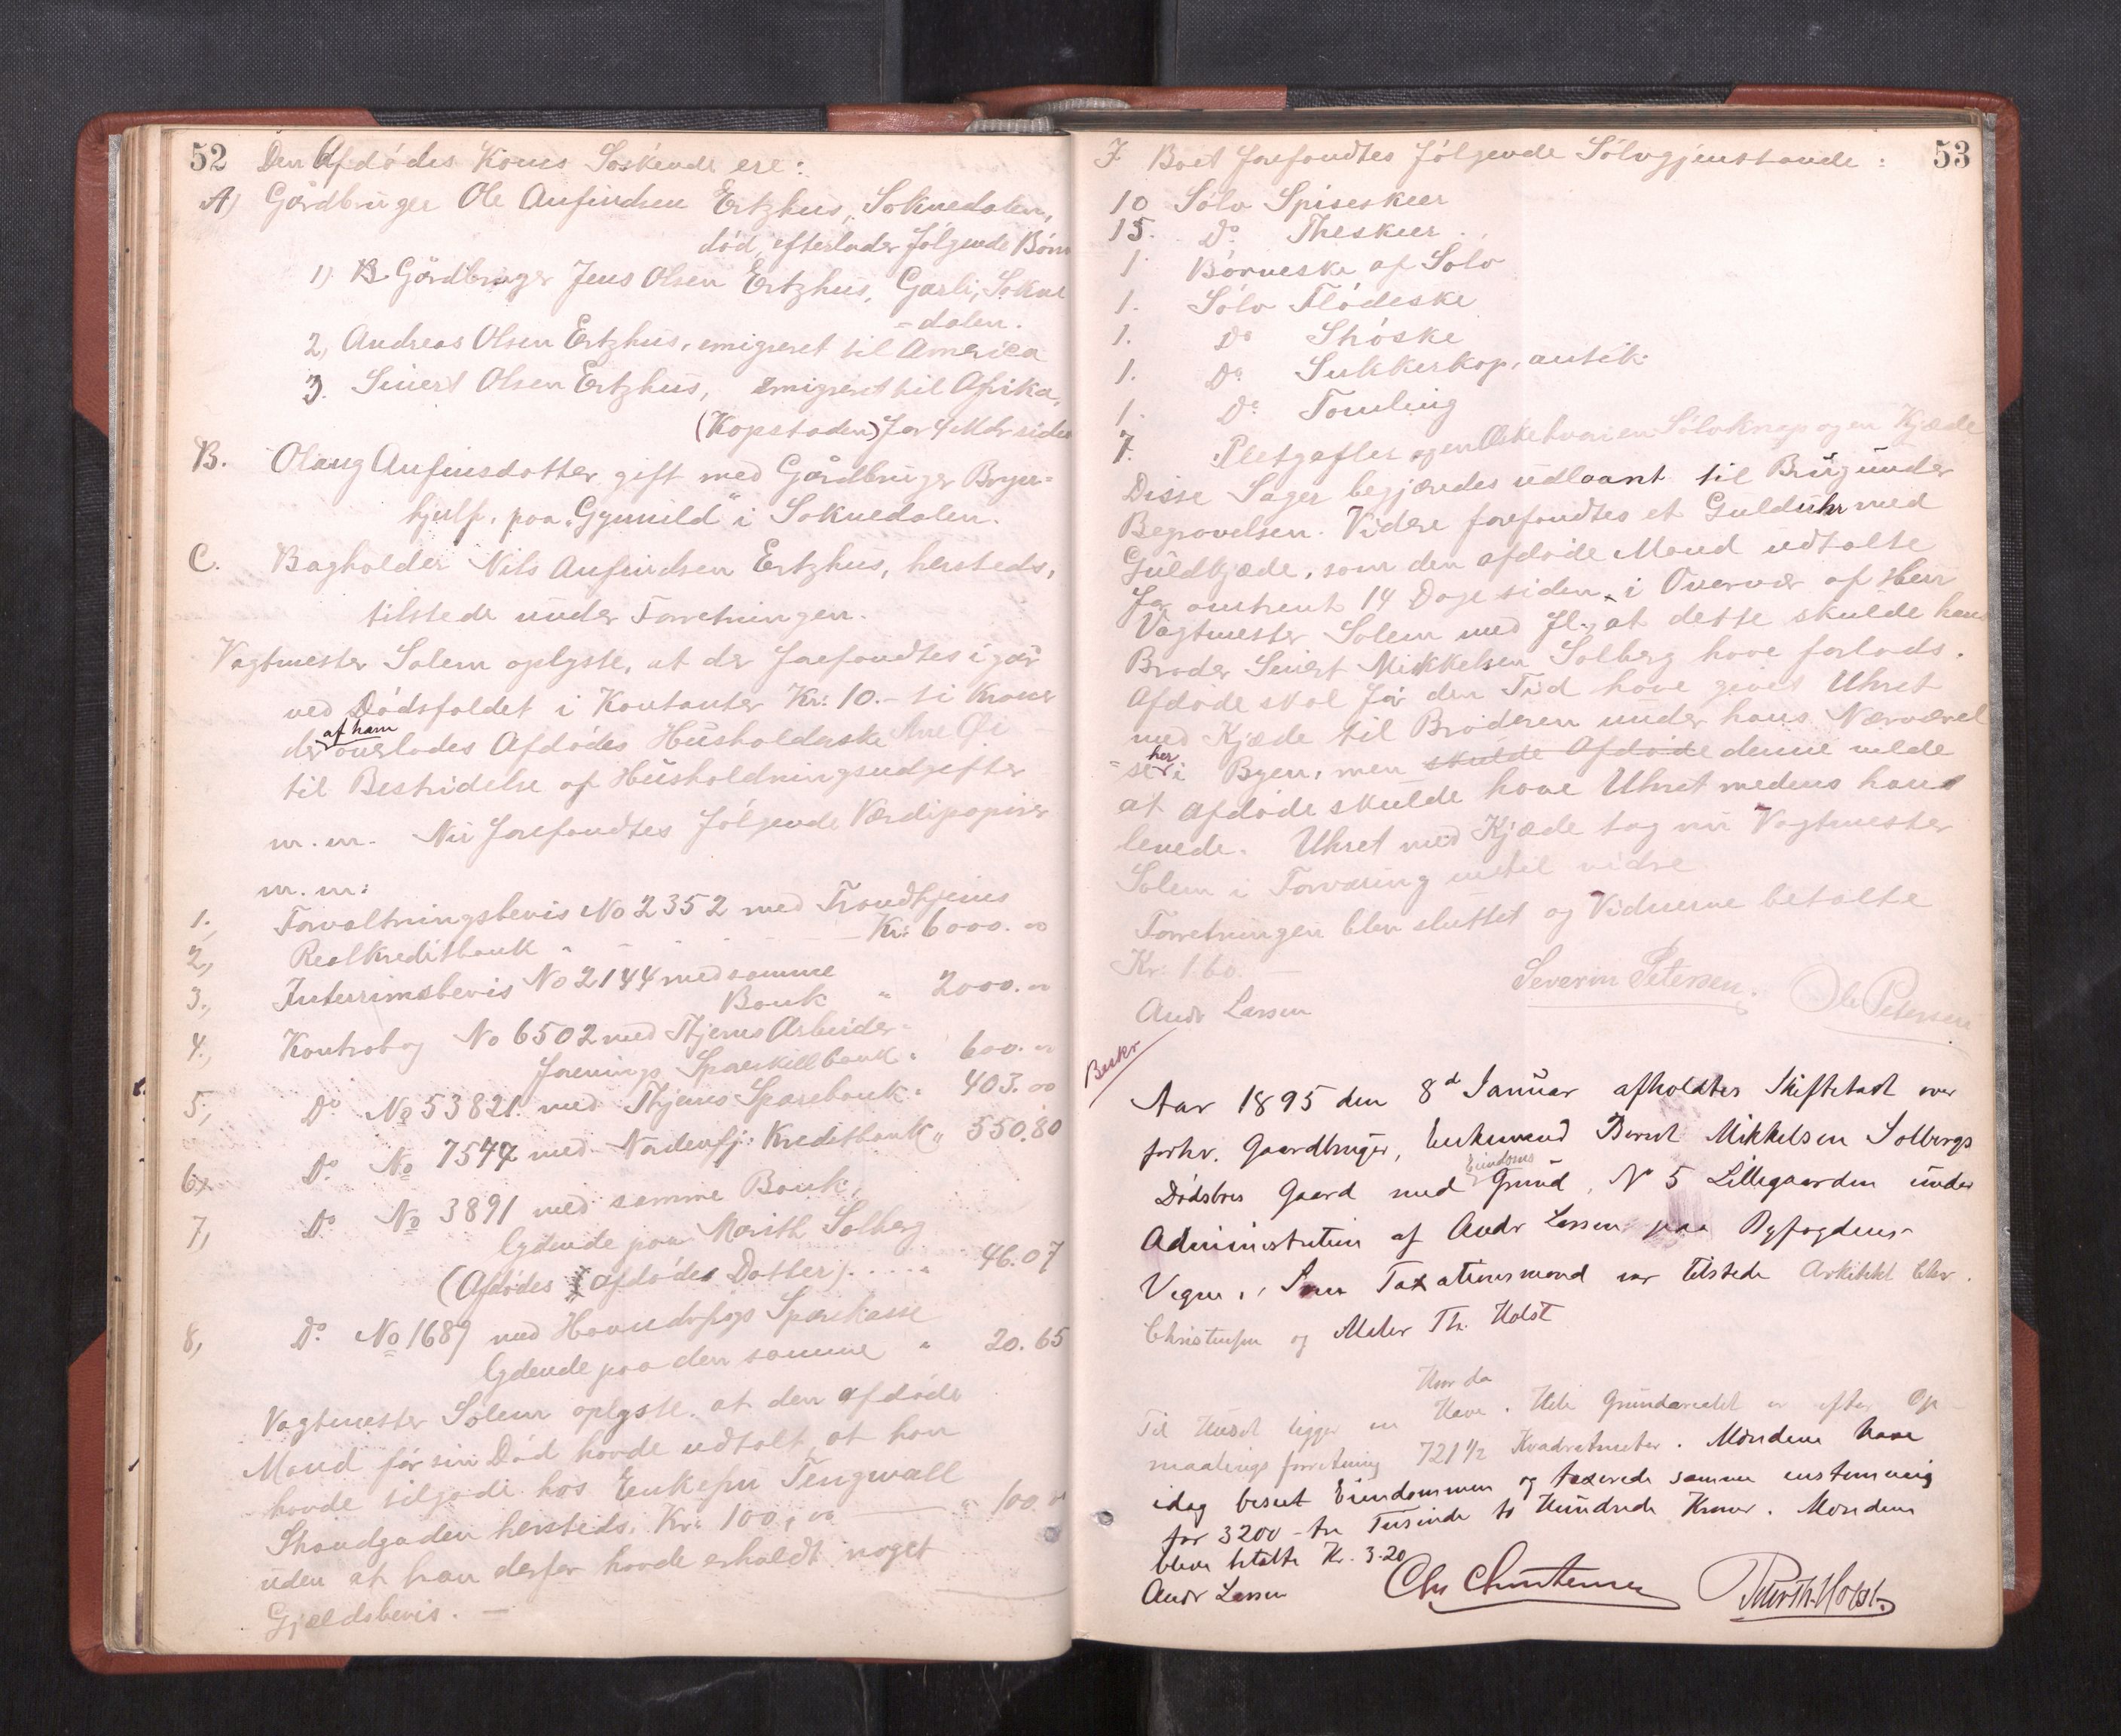 52 Den Afdødes Kones Søskende ere:
A) Gårdbruger Ole Anfindsen Ertzhus, Soknedalen,
død, efterlader følgende Børn
1) Gårdbruger Jens Olsen Ertzhus, Garli, Sokne
=dalen.
2, Andreas Olsen Ertzhus, emigreret til America
3. Sivert Olsen Ertzhus, emigreret til Afrika,
(Kapstaden) for 4 Mdr siden
B. Olaug Anfinsdatter gift med Gårdbruger Bryn=
hjulf, paa "Gynnild" i Soknedalen.
C. Bagholder Nils Anfindsen Ertzhus, hersteds,
tilstede under Forretningen.
Vagtmester Solem oplyste, at der forefandtes igår
ved Dødsfaldet i Kontanter Kr: 10.- ti Kroner
af ham
der overlodes Afdødes Husholderske Ane Øi
til Bestridelse af Husholdningsudgifter
m.m. Nu forefandtes følgende Værdipapirer
m.m:
1. Forvaltningsbevis No 2352 med Trondhjems
2, Realkreditbank " Kr: 6000.00
3., Interrimsbevis No 2144 med samme
Bank " 2000.00
4., Kontrabog No 6502 med Thjems Arbeider=
forenings Spareskillbank " 600.00
5., Do No 53821. med Thjems Sparebank " 403.00
6, Do No 7547 med Nordenfj: Kreditbank " 550.80
7, Do No 3891 med samme Bank,
lydende paa Marith Solberg
(Afdødes afdøde Datter) .... " 46.07
8, Do No 1689 med Sparekasse
lydende paa den samme " 20.65
Vagtmester Solem oplyste, at den afdøde
Mand før sin Død havde udtalt, at han
havde tilgode hos Enkefru Tengwall
Strandgaden hersteds, Kr: 100,00 " 100.00
uden at han derfor havde erholdt noget
Gjældsbevis. —
I Boet forefandtes følgende Sølvgjenstande: 53
10 Sølv Spiseskeer
15. Do Theskeer
1. Børneske af Sølv
1. Sølv Flødeske
1. Do Strøske
1. Do Sukkerkop, antik.
1. Do Tomling
7. Pletgafler og en Æske hvori en Sølvknap og en Kjæde
Disse Sager begjæredes udlaant til Brug under
Begravelsen. Videre forefandtes et Guldühr med
Guldkjæde, som den afdøde Mand udtalte
for omtrent 14 Dage siden, i Overvær af Herr
Vagtmester Solem med fl., at dette skulde hans
Broder Sivert Mikkelsen Solberg have forlods.
Afdøde skal før den Tid have givet Uhret
med Kjæde til Broderen under hans Nærværel
her
=se i Byen, men skulde Afdøde denne vilde
at afdøde skulde have Uhret medens han
levede. Uhret med Kjæde tog nu Vagtmester
Solem i Forvaring indtil videre
Forretningen blev sluttet og Vidnerne betalte
Kr. 1.60.
Severin Petersen. Ole Petersen
Andr Larsen
Beskr
Aar 1895 den 8d Januar afholdtes Skiftetaxt over
forhv. Gaardbruger, Enkemand Bernt Mikkelsen Solbergs
Eiendoms
Dødsboes Gaard med Grund, No 5 Lillegaarden under
Administration af Andr Larsen paa Byfogdens
Vegne. Som Taxationsmænd var tilstede Arkitekt Chr.
Christensen og Maler Th. Holst
Til Huset ligger en Have. Hele Grundarealet er efter Op=
maalingsforretning 721½ Kvadratmeter. Mændene have
idag beseet Eiendommen og taxerede samme enstemmig
for 3200 - tre Tusinde to Hundrede Kroner. Mændene
bleve betalte Kr. 3.20
Andr Larsen Chr Christensen Th. Holst.